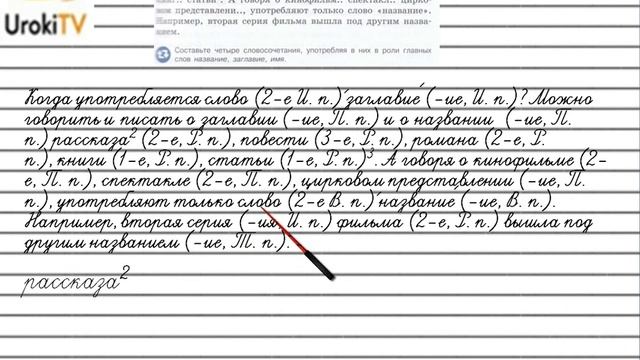 UrokiTV
дрком представлени.., употребляют только слово «название».
Например, вторая серия фильма вышла под другим назва-
нием.
Составьте четыре словосочетания, употребляя в них в роли главных
слов название, заглавие, имя.
Когда употребляется слово (2-е И. п.) заглавие (-ие, И. п.)? Можно
говорить и писать о заглавии (-ие, П. п.) и о названии (-ие, П.
п.) рассказа² (2-е, Р. п.), повести (3-е, Р. п.), романа (2-е, Р.
п.), книги (1-е, Р. п.), статьи (1-е, Р. п.)³. А говоря о кинофильме (2-
е, П. п.), спектакле (2-е, П. п.), цирковом представлении (-ие, П.
п.), употребляют только слово (2-е В. п.) название (-ие, В. п.).
Например, вторая серия (-ия, И. п.) фильма (2-е, Р. п.) вышла под
другим названием (-ие, Т. п.).
рассказа²